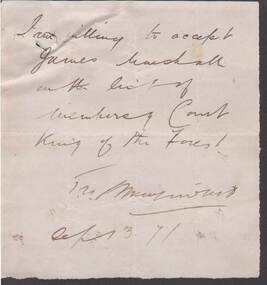 I am willing to accept
James Marshall
on the list of
members of Court
King of the Forest
Apl 13. 71